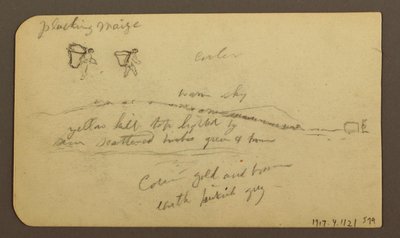 plucking maize
warm sky
yellow hill top lighted by
scattered green &
Corn gold and brown
with pinkish grey
1917.9.1121 579